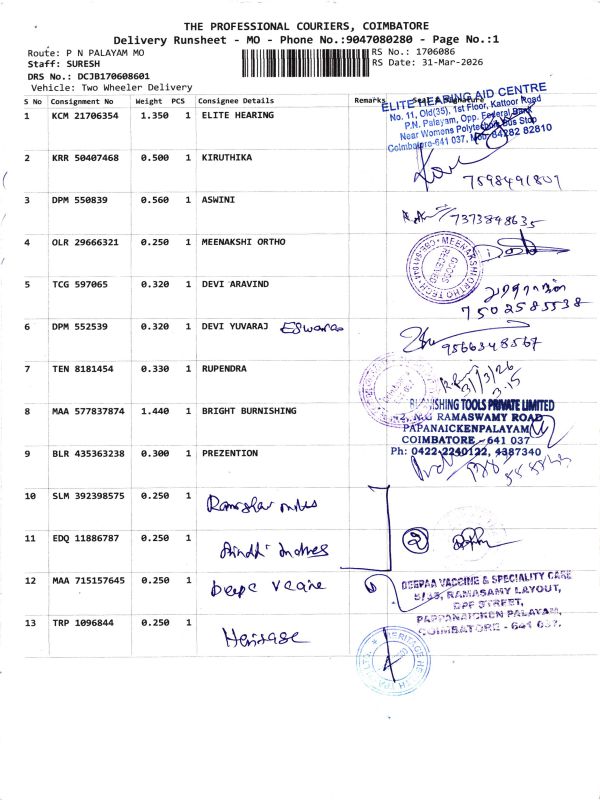 THE PROFESSIONAL COURIERS, COIMBATORE
Delivery Runsheet - MO - Phone No.:9047080280 - Page No.:1
Route: P N PALAYAM MO
RS No.: 1706086
Staff: SURESH
RS Date: 31-Mar-2026
DRS No.: DCJB170608601
Vehicle: Two Wheeler Delivery
S No Consignment No Weight PCS Consignee Details Remarks Seal & Signature
1 KCM 21706354 1.350 1 ELITE HEARING
ELITE HEARING AID CENTRE
No. 11, Old(35), 1st Floor, Kattoor Road
P.N. Palayam, Opp. Federal Bank
Near Womens Polytechnic Bus Stop
Coimbatore-641 037, Mob: 84282 82810
2 KRR 50407468 0.500 1 KIRUTHIKA
7598491807
3 DPM 550839 0.560 1 ASWINI
7373898635
4 OLR 29666321 0.250 1 MEENAKSHI ORTHO
GOODS RECEIVED
5 TCG 597065 0.320 1 DEVI ARAVIND
7502585538
6 DPM 552539 0.320 1 DEVI YUVARAJ Eswaras
9566348567
7 TEN 8181454 0.330 1 RUPENDRA
31/3/26
3.15
8 MAA 577837874 1.440 1 BRIGHT BURNISHING
BURNISHING TOOLS PRIVATE LIMITED
RAMASWAMY ROAD
PAPANAICKENPALAYAM
COIMBATORE - 641 037
Ph: 0422-2240122, 4387340
9 BLR 435363238 0.300 1 PREZENTION
10 SLM 392398575 0.250 1
11 EDQ 11886787 0.250 1
2
12 MAA 715157645 0.250 1
DEEPAA VACCINE & SPECIALITY CARE
5/33, RAMASAMY LAYOUT,
GPF STREET,
PAPPANAICKEN PALAYAM,
COIMBATORE - 641 037.
13 TRP 1096844 0.250 1 Heritage